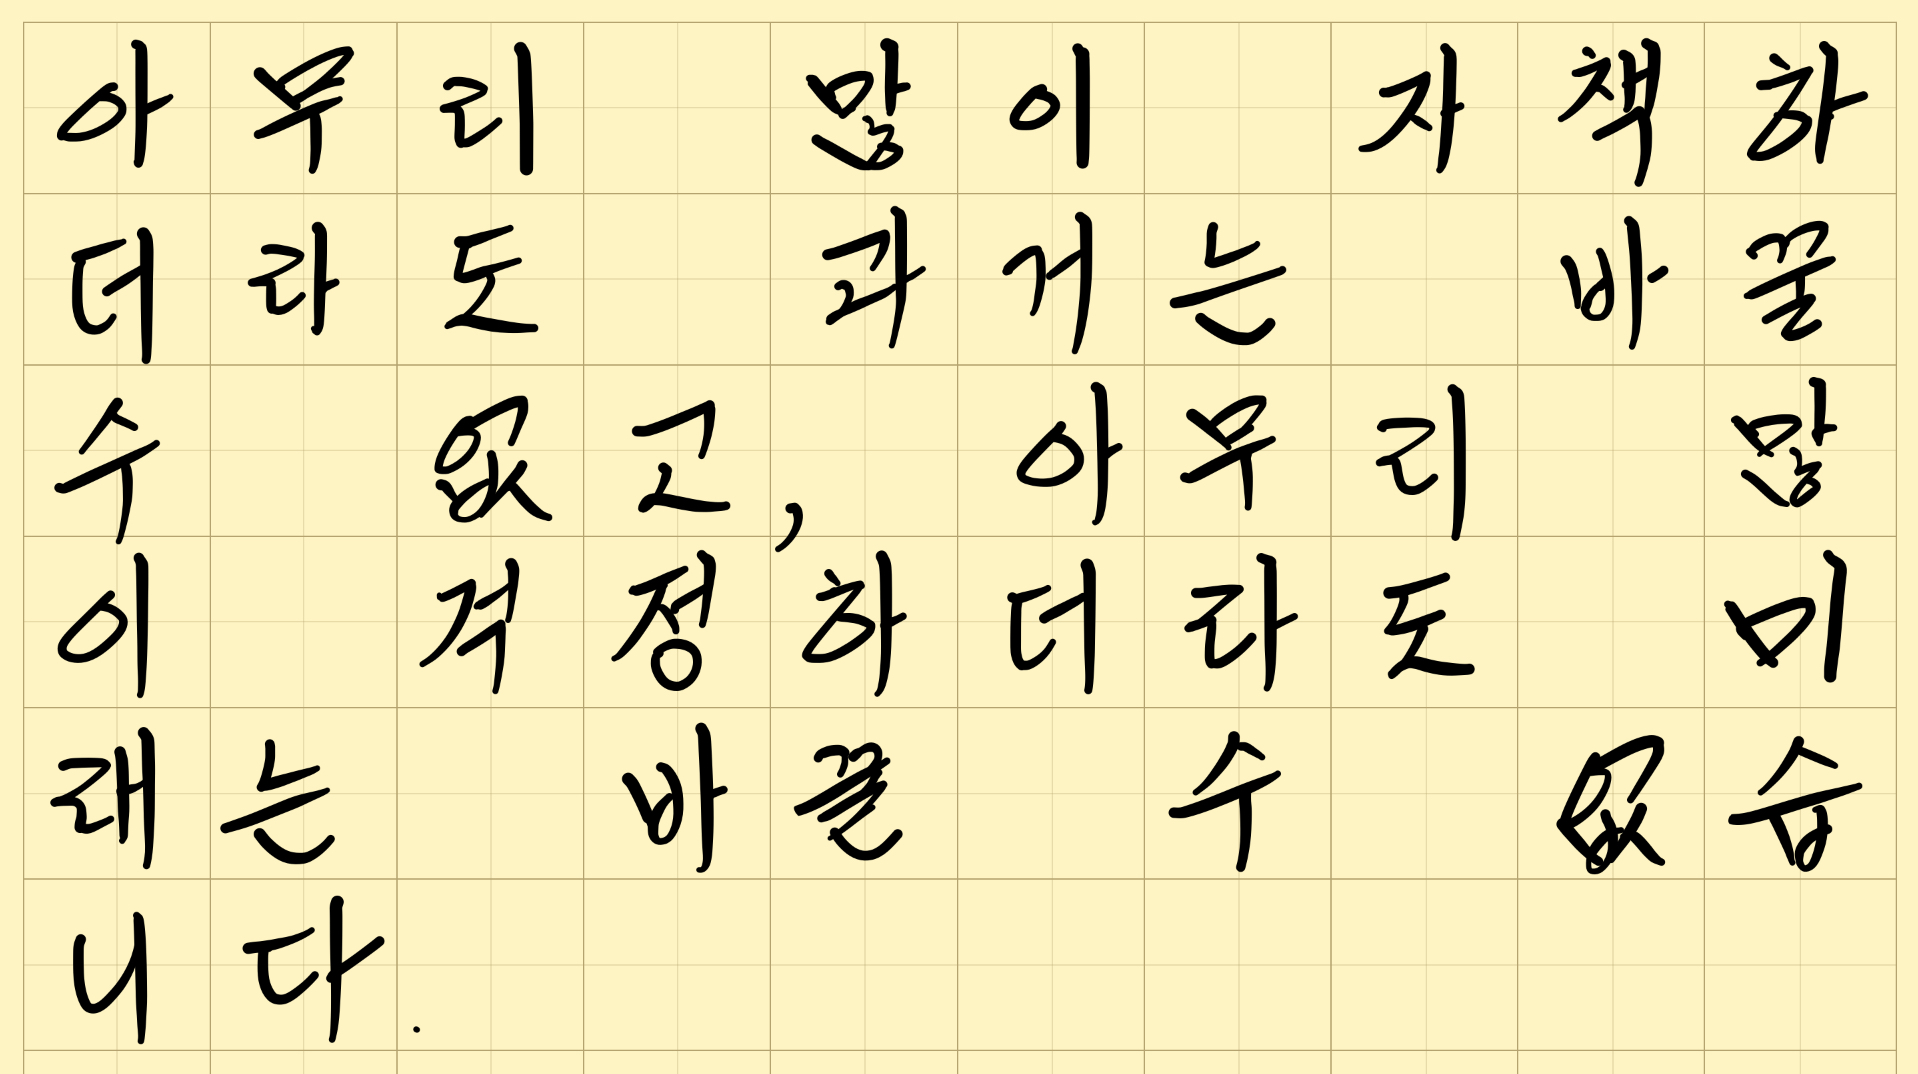 아무리 많이 자책하
더라도 과거는 바꿀
수 없고, 아무리 많
이 걱정하더라도 미
래는 바꿀 수 없습
니다.